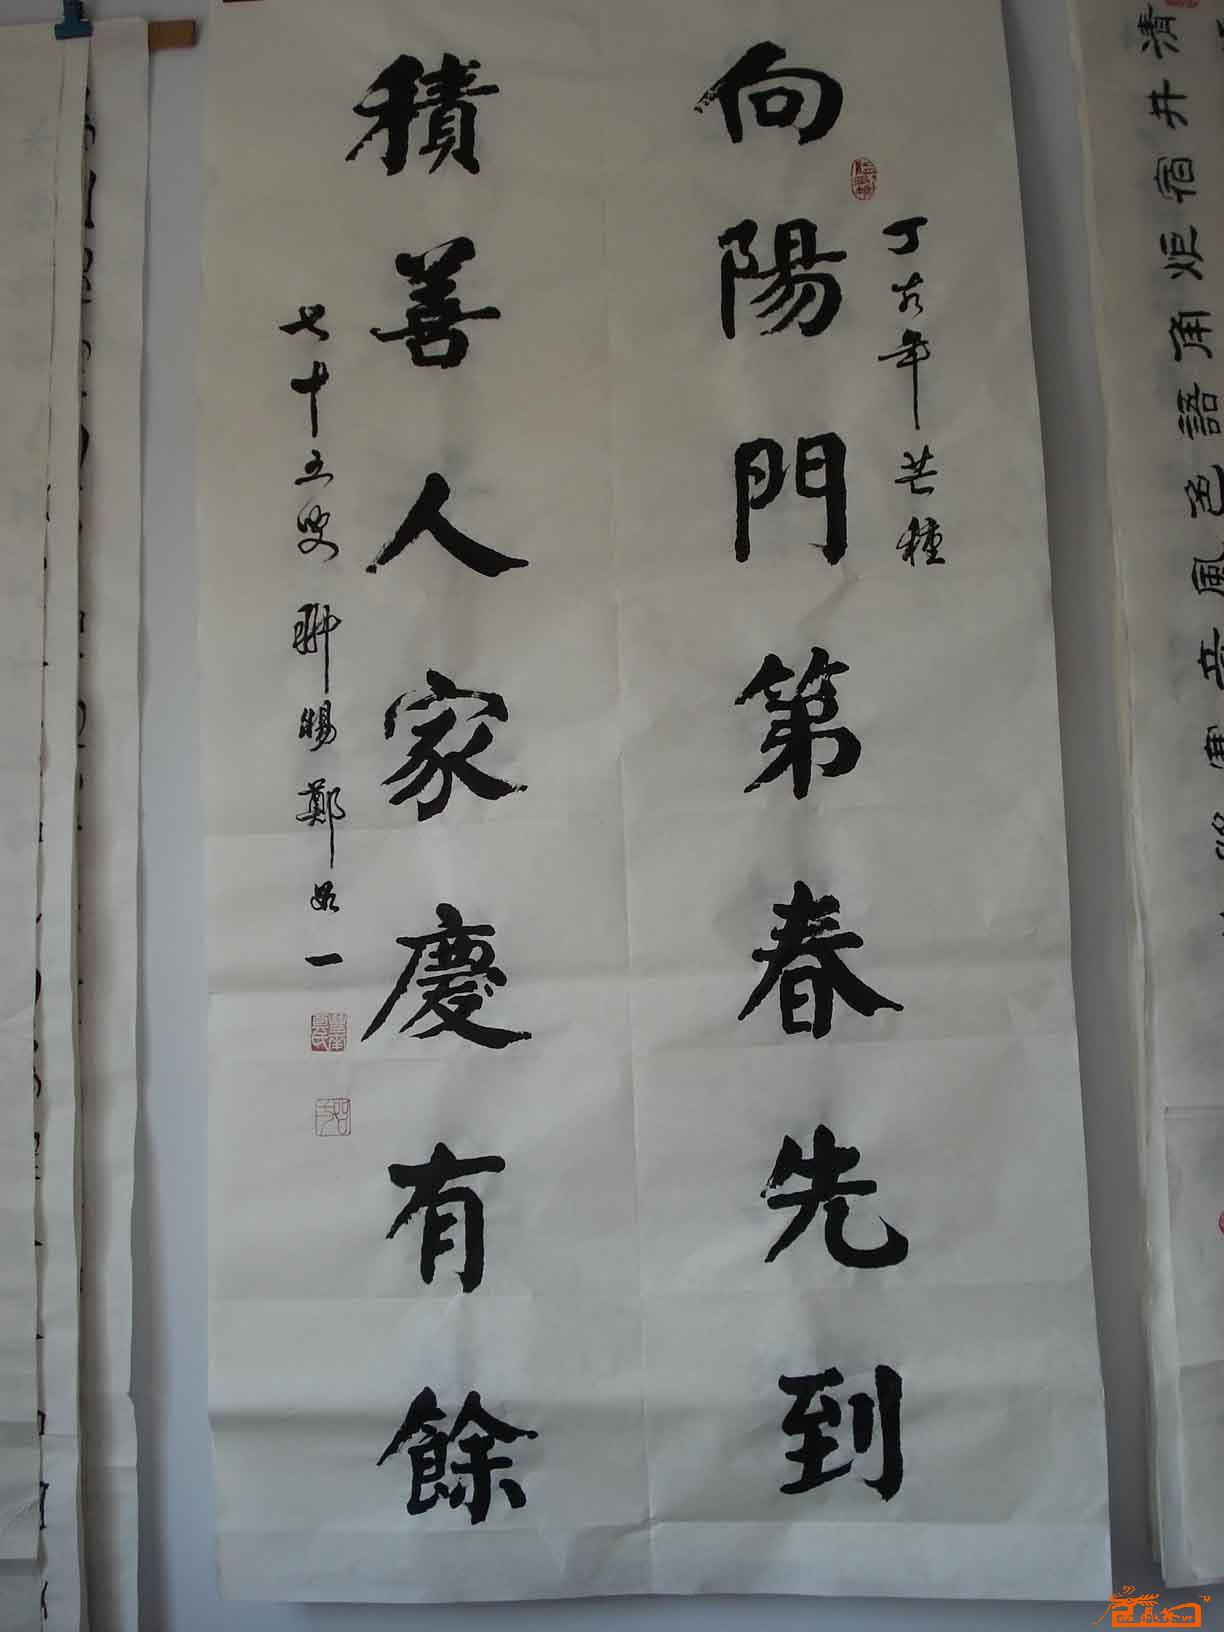 向陽門第春先到
丁亥年芒種
積善人家慶有餘
七十五叟 聊賜鄭如一
清井宿炬角語色風